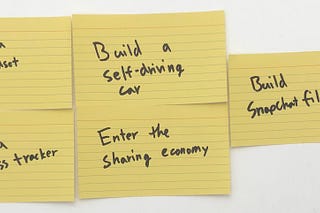 a
set
Build a
self-driving
car
Build
Snapchat fil
a
ss tracker
Enter the
sharing economy